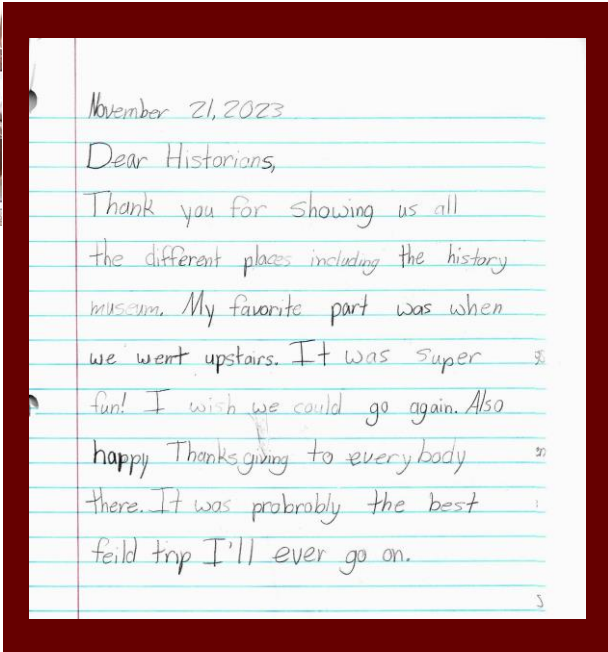 November 21, 2023
Dear Historians,
Thank you for showing us all
the different places including the history
museum. My favorite part was when
we went upstairs. It was super
fun! I wish we could go again. Also
happy Thanksgiving to everybody
there. It was probrobly the best
feild trip I'll ever go on.